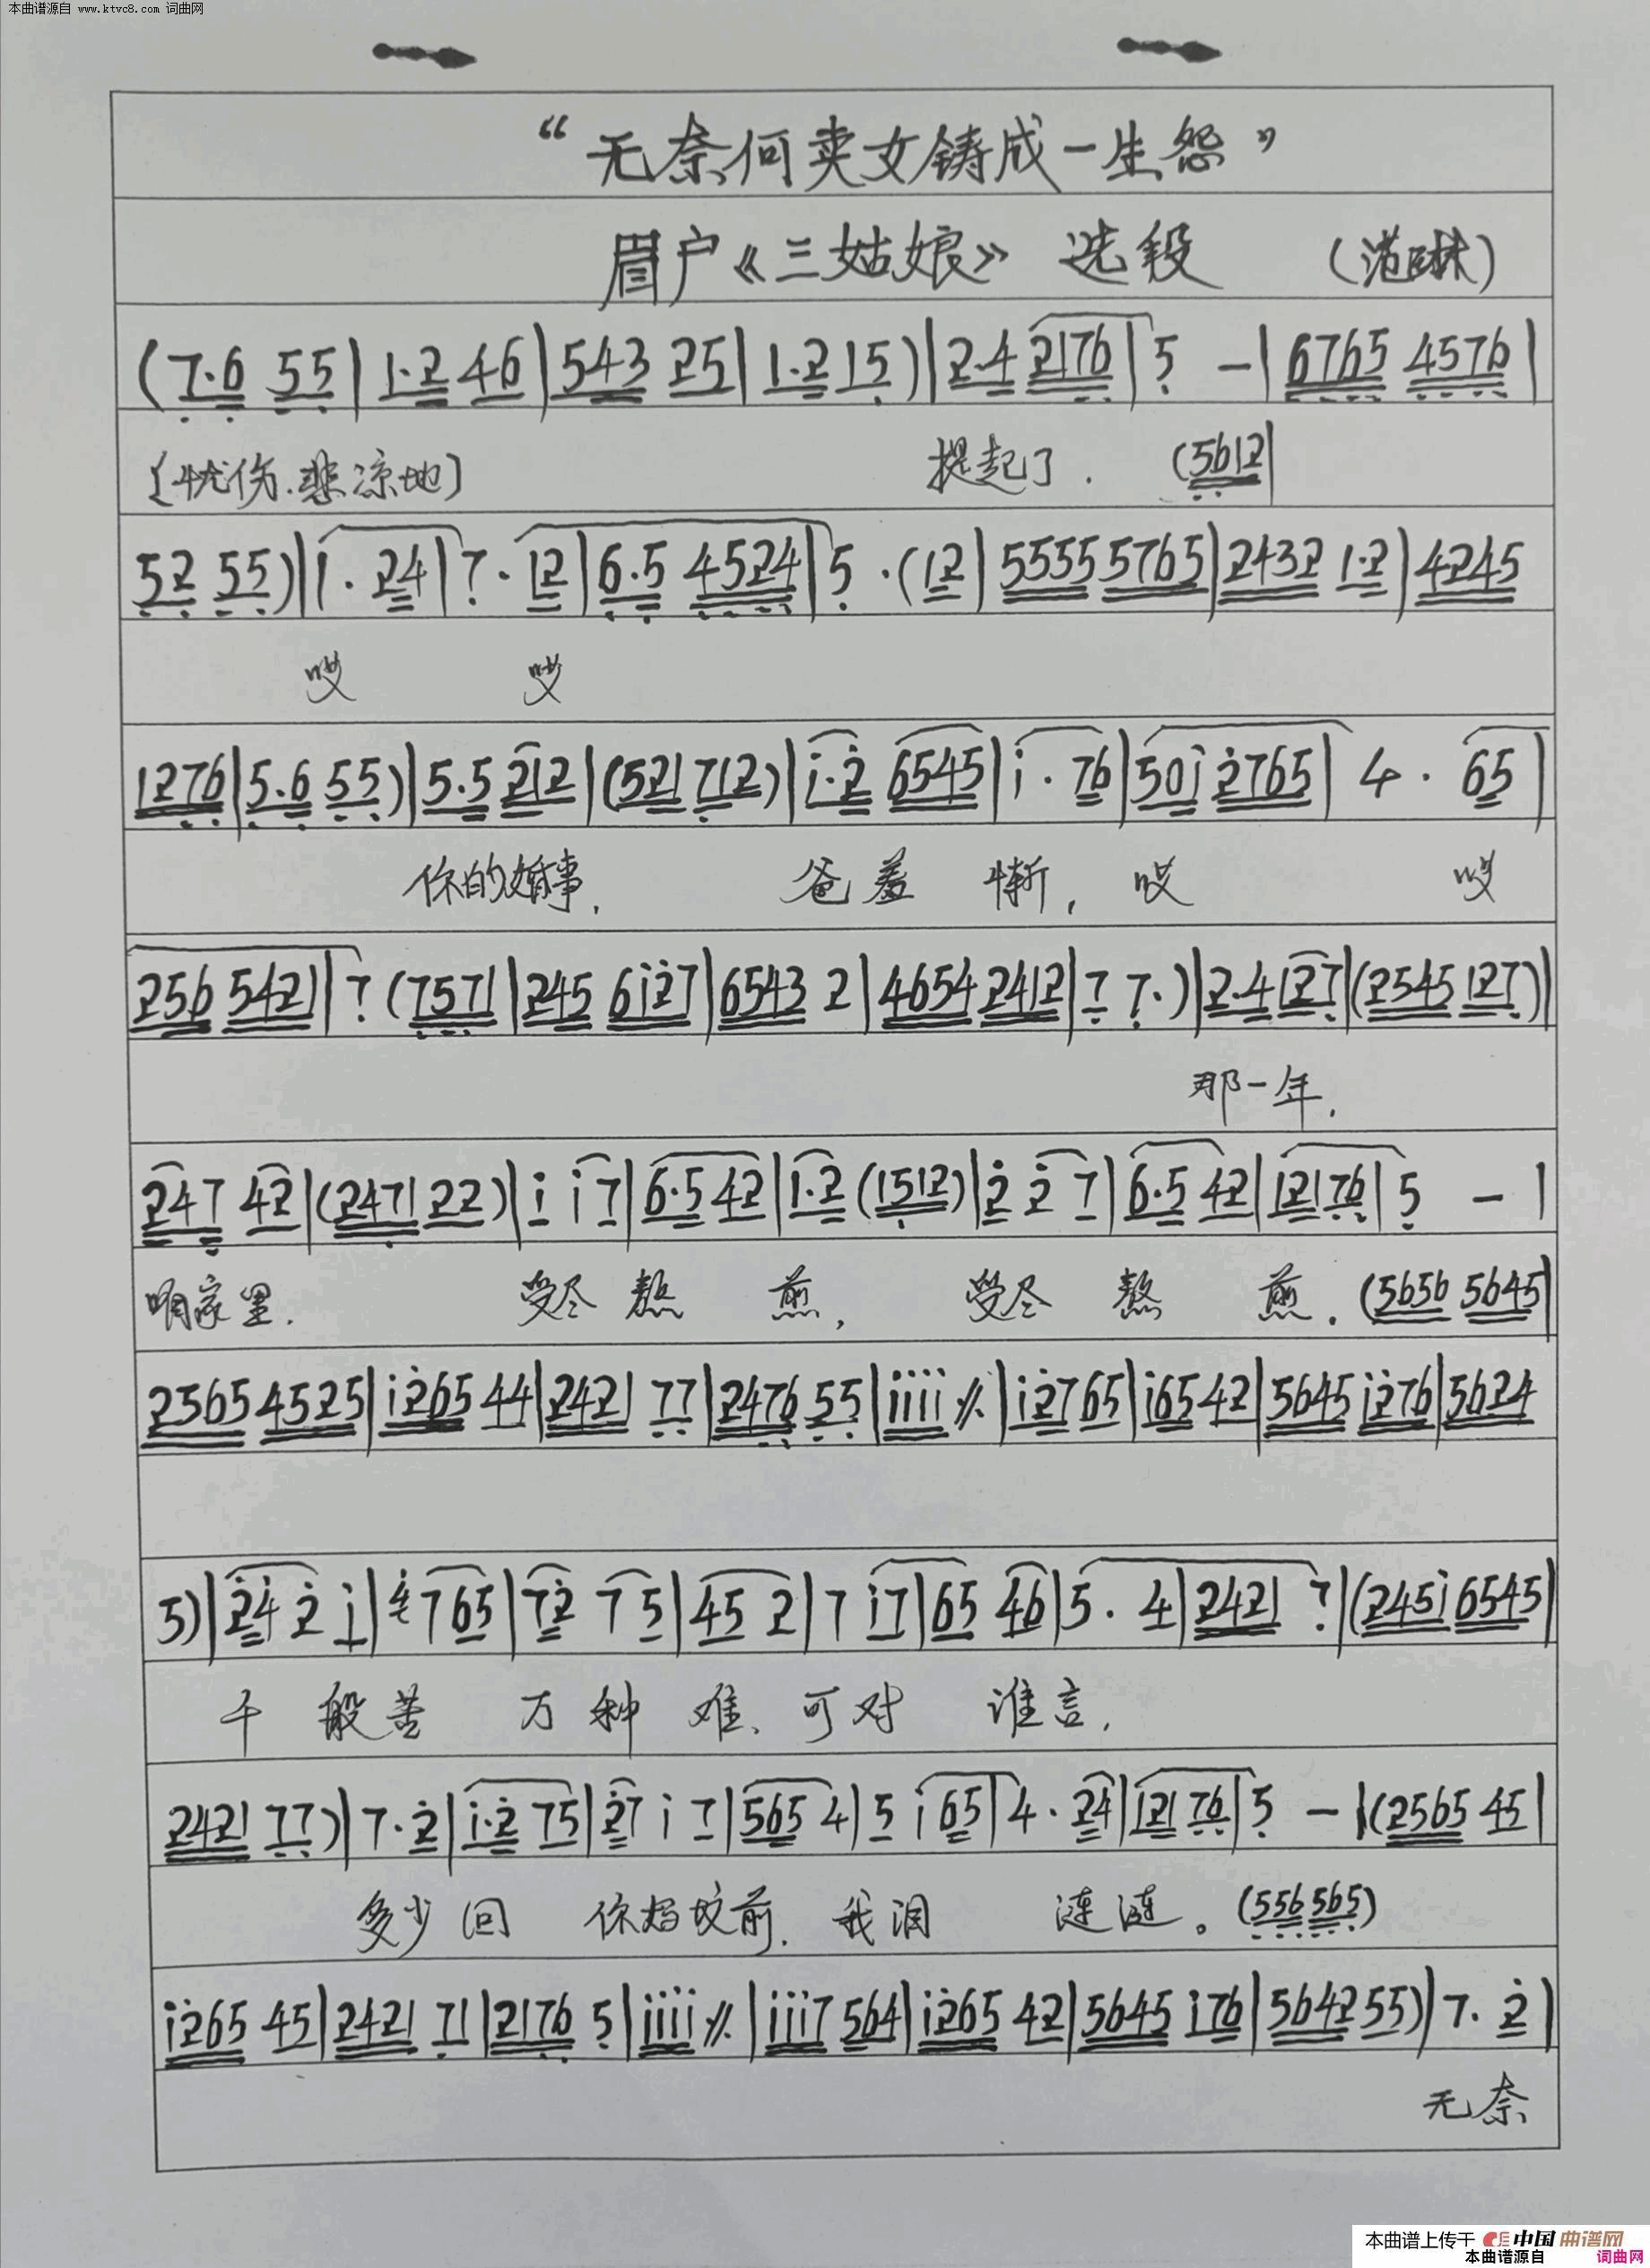 本曲谱源自 www.ktvc8.com 词曲网
“无奈何卖女铸成一生怨”
眉户《三姑娘》 选段 (范琳)
(7·6 55|1·2 46|543 25|1·2 15)|2·4 2176|5 -|6765 4576|
〔忧伤.悲凉地〕 提起了. (5612|
52 55)|1· 24|7· 12|6·5 4524|5 ·(12|5555 5765|2432 1·2|4245
哎 哎
1276|5·6 55)|5·5 212|(521 712)|i·2 6545|i· 76|50i 2765|4· 65|
你的婚事, 爸羞惭, 哎 哎
256 5421|7 (7571|245 6i27|6543 2|4654 2412|7 7·)|2·4 127|(2545 127)|
那一年.
247 42|(2471 22)|i i7|6·5 42|1·2 (1512)|2 2 7|6·5 42|12176|5 -|
咱家里. 受尽熬煎, 受尽熬煎. (5656 5645|
2565 4525|i265 44|2421 77|2476 55|iiii ⁒|i2765|i65 42|5645 i276|5624
5)|24 2 i|4 7 65|72 7 5|45 2|7 i7|65 46|5· 4|2421 7|(245i 6545|
千般苦 万种难、可对谁言,
2421 77)|7·2|i·2 75|27 i 7|565 4|5 i 65|4· 24|121 76|5 -|(2565 45|
多少回 你妈坟前. 我泪涟涟。(556 565)
i265 45|2421 71|2176 5|iiii ⁒|iii7 564|i265 42|5645 i76|5642 55)|7· 2|
无奈
本曲谱上传于 中国曲谱网
本曲谱源自 词曲网